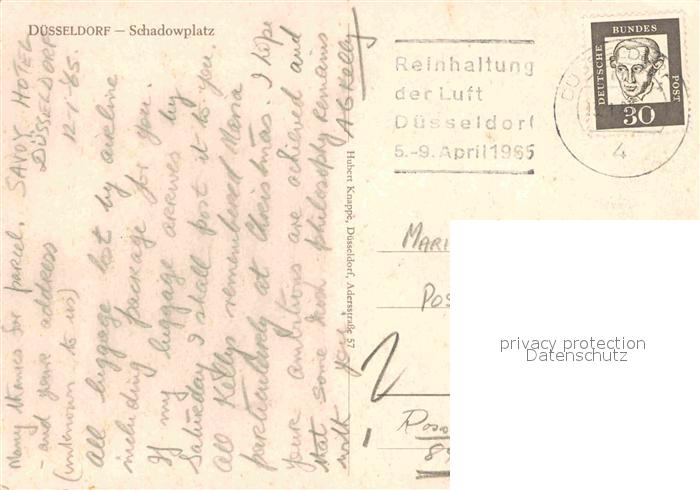 DÜSSELDORF — Schadowplatz
SAVOY HOTEL
DÜSSELDORF
12/1/65.
Many thanks for parcel.
- and your address
(unknown to us)
All luggage lost by airline
including package for you.
If my luggage arrives by
Saturday I shall post it to you.
All Kellys remembered Maria
particularly at Christmas. I hope
your ambitions are achieved and
that some Irish philosophy remains
with you.
A G Kelly
Hubert Knappe, Düsseldorf, Adersstraße 57
Reinhaltung
der Luft
Düsseldorf
5.-9. April 1965
4
DEUTSCHE
BUNDES
POST
30
MARI
POS
privacy protection
Datenschutz